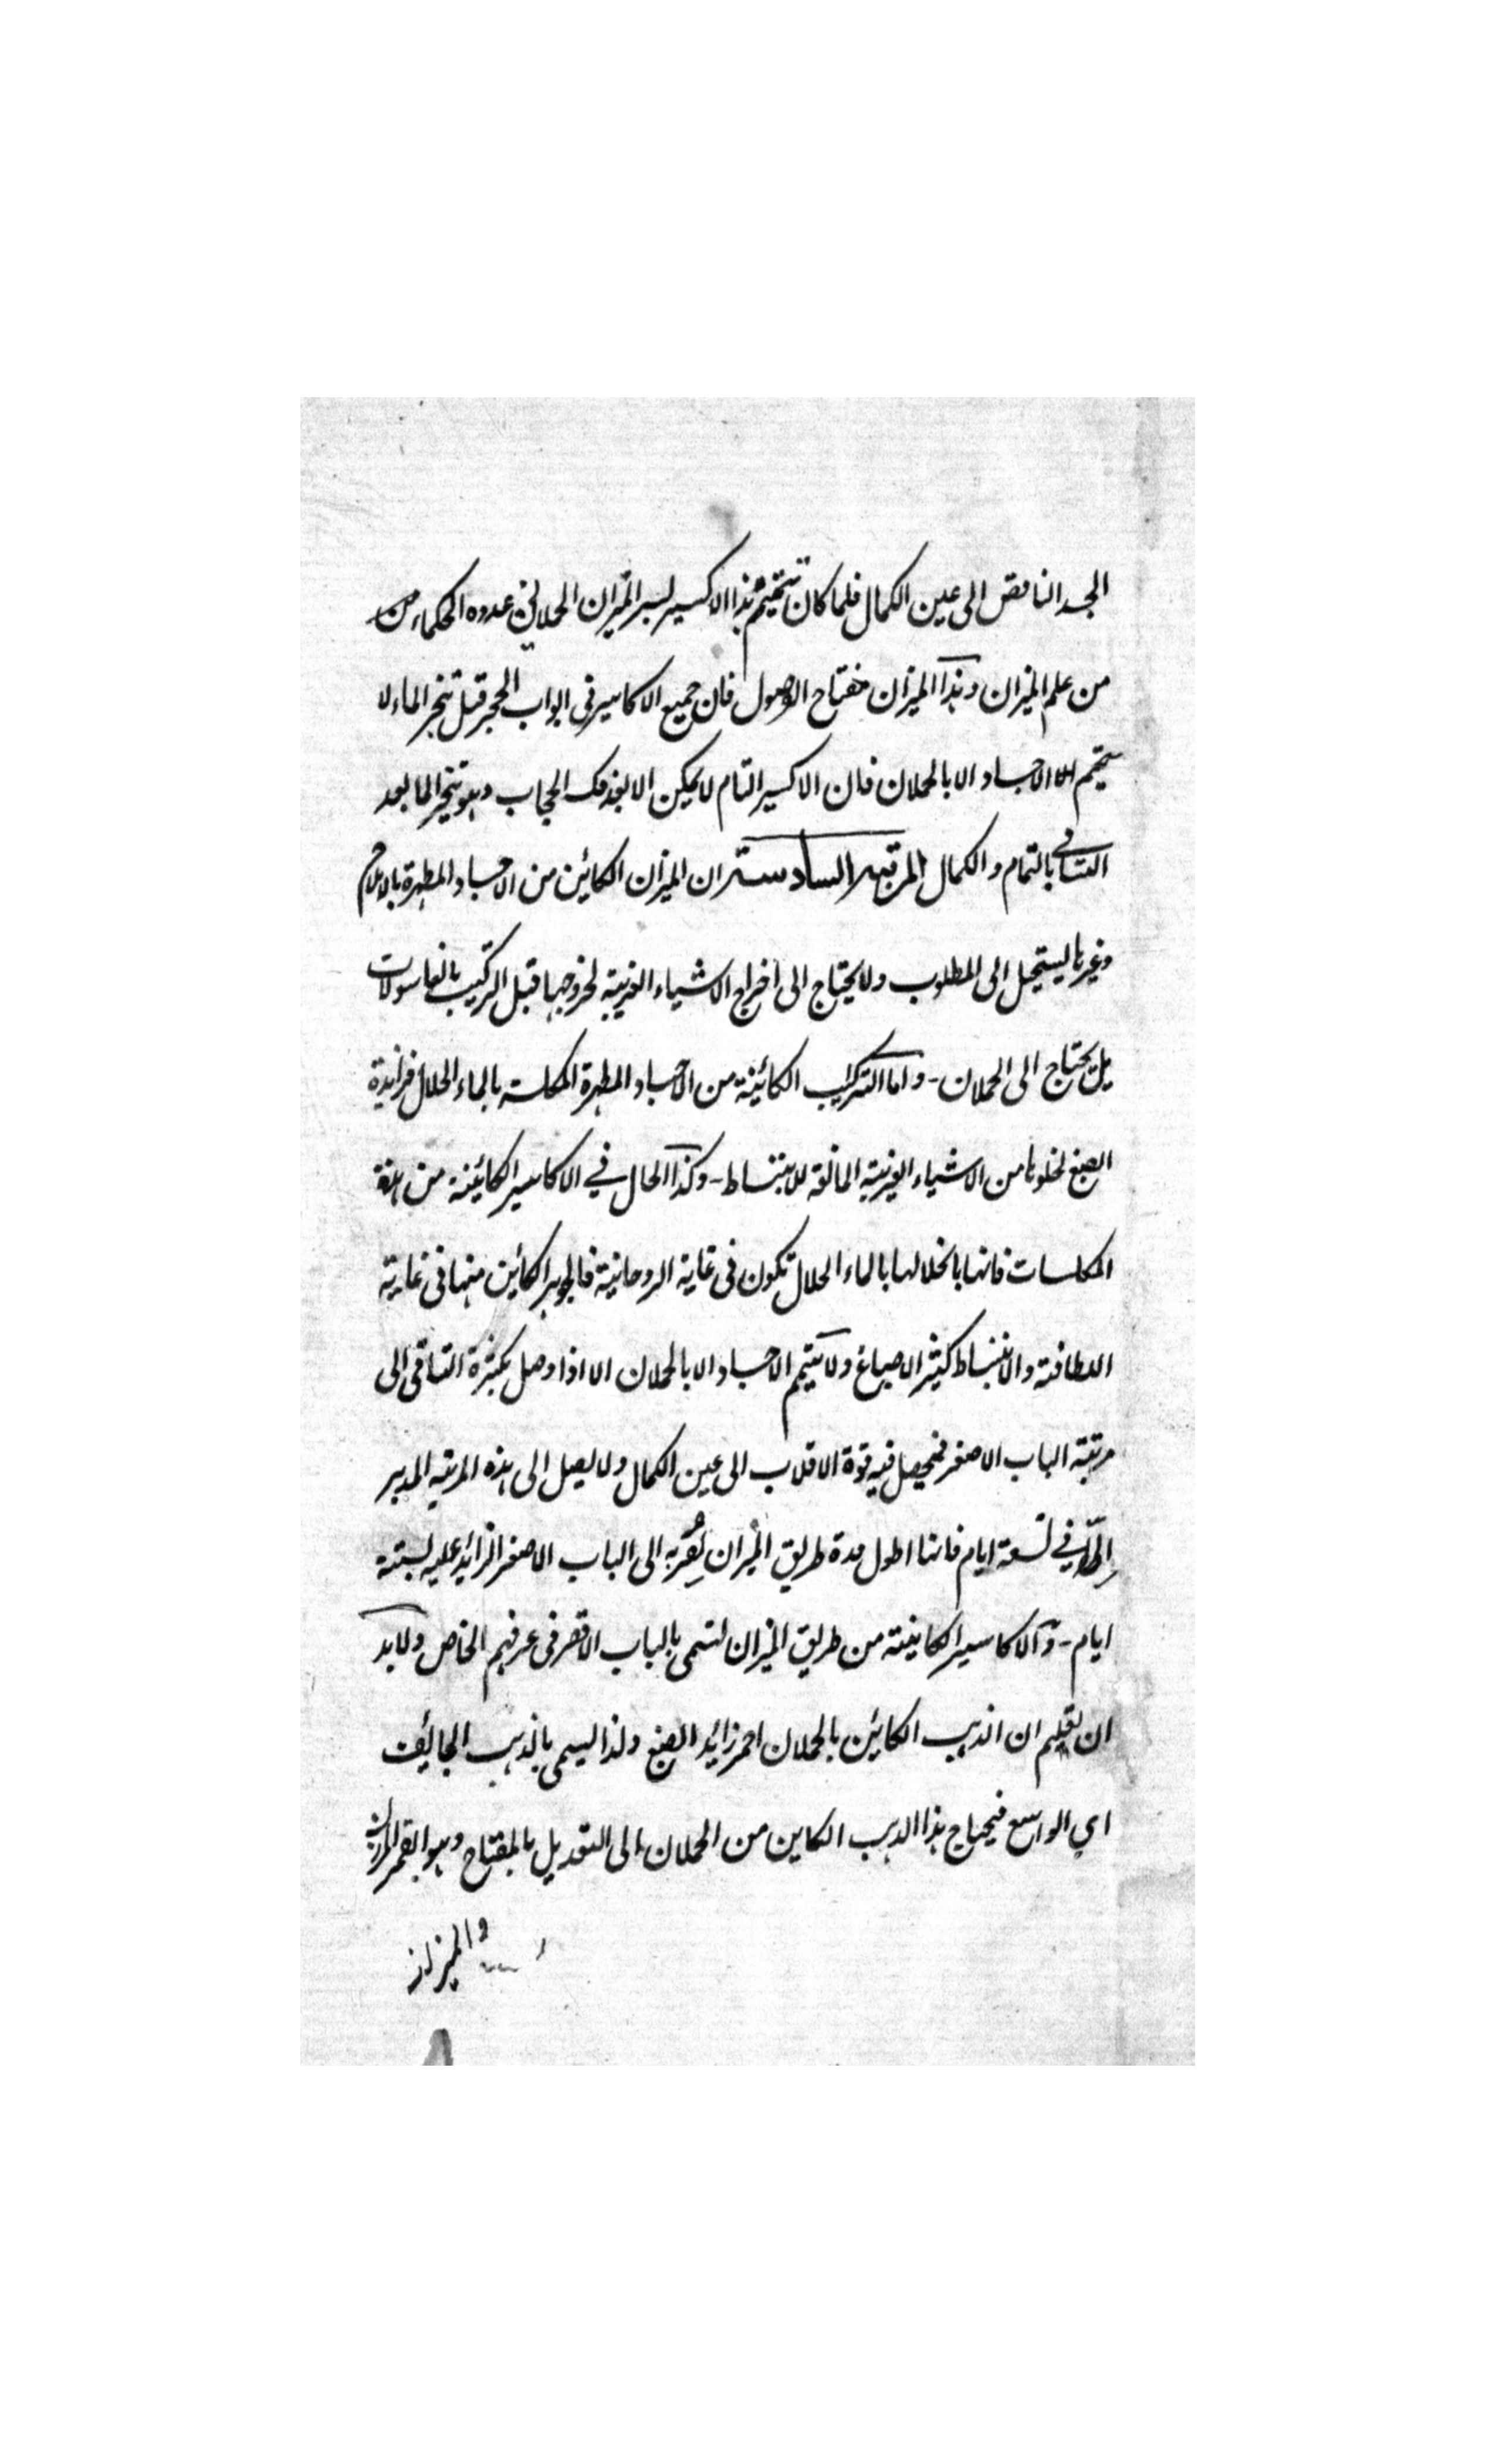 الجسد الناقص الى عين الكمال فلما كان تتميم هذا الاكسير لسير الميزان الحملاني عدوه الحكماء من
من علم الميزان وهذا الميزان مفتاح الوصول فان جميع الاكاسير فى ابواب الحجر قبل تنجر الماء لا
تتمم الاجساد الا بالحملان فان الاكسير التام لا يمكن الا بعد فك الحجاب وهو تنجير الما بعد
التساقي بالتمام والكمال المرتبة السادسة ان الميزان الكائين من الاجساد المطهرة بالاملاح
وغيرها ليستحيل الى المطلوب ولا يحتاج الى اخراج الاشياء الغريبة لخروجها قبل التركيب بالغاسولات
بل يحتاج الى الحملان - واما التراكيب الكائينة من الاجساد المطهرة المكلسة بالماء الحلال فزائدة
الصبغ لخلوها من الاشياء الغريبة المانعة للانبساط - وكذا الحال في الاكاسير الكائينة من هذه
المكلسات فانها بانحلالها بالماء الحلال تكون فى غاية الروحانية فالجوهر الكائين منها فى غاية
اللطافة والانبساط كثير الاصباغ ولا تتمم الاجساد الا بالحملان الا اذا وصل بكثرة التساقى الى
مرتبة الباب الاصغر فيحصل فيه قوة الاقلاب الى عين الكمال ولا يصل الى هذه المرتبة المدبر
الا في تسعة ايام فانها اطول مدة طريق الميزان لقربه الى الباب الاصغر الزائد عليه بستة
ايام - والاكاسير الكاينة من طريق الميزان لتسمى بالباب الاقصر فى عرفهم الخاص ولا بد
ان تعلم ان الذهب الكائين بالحملان احمر زائد الصبغ ولذا ليسمى بالذهب الجائف
اي الواسع فيحتاج هذا الذهب الكاين من الحملان الى التعديل بالمفتاح وهو القمر
والميزان